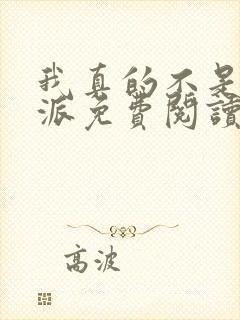 我真的不是
派免費閱讀
高波